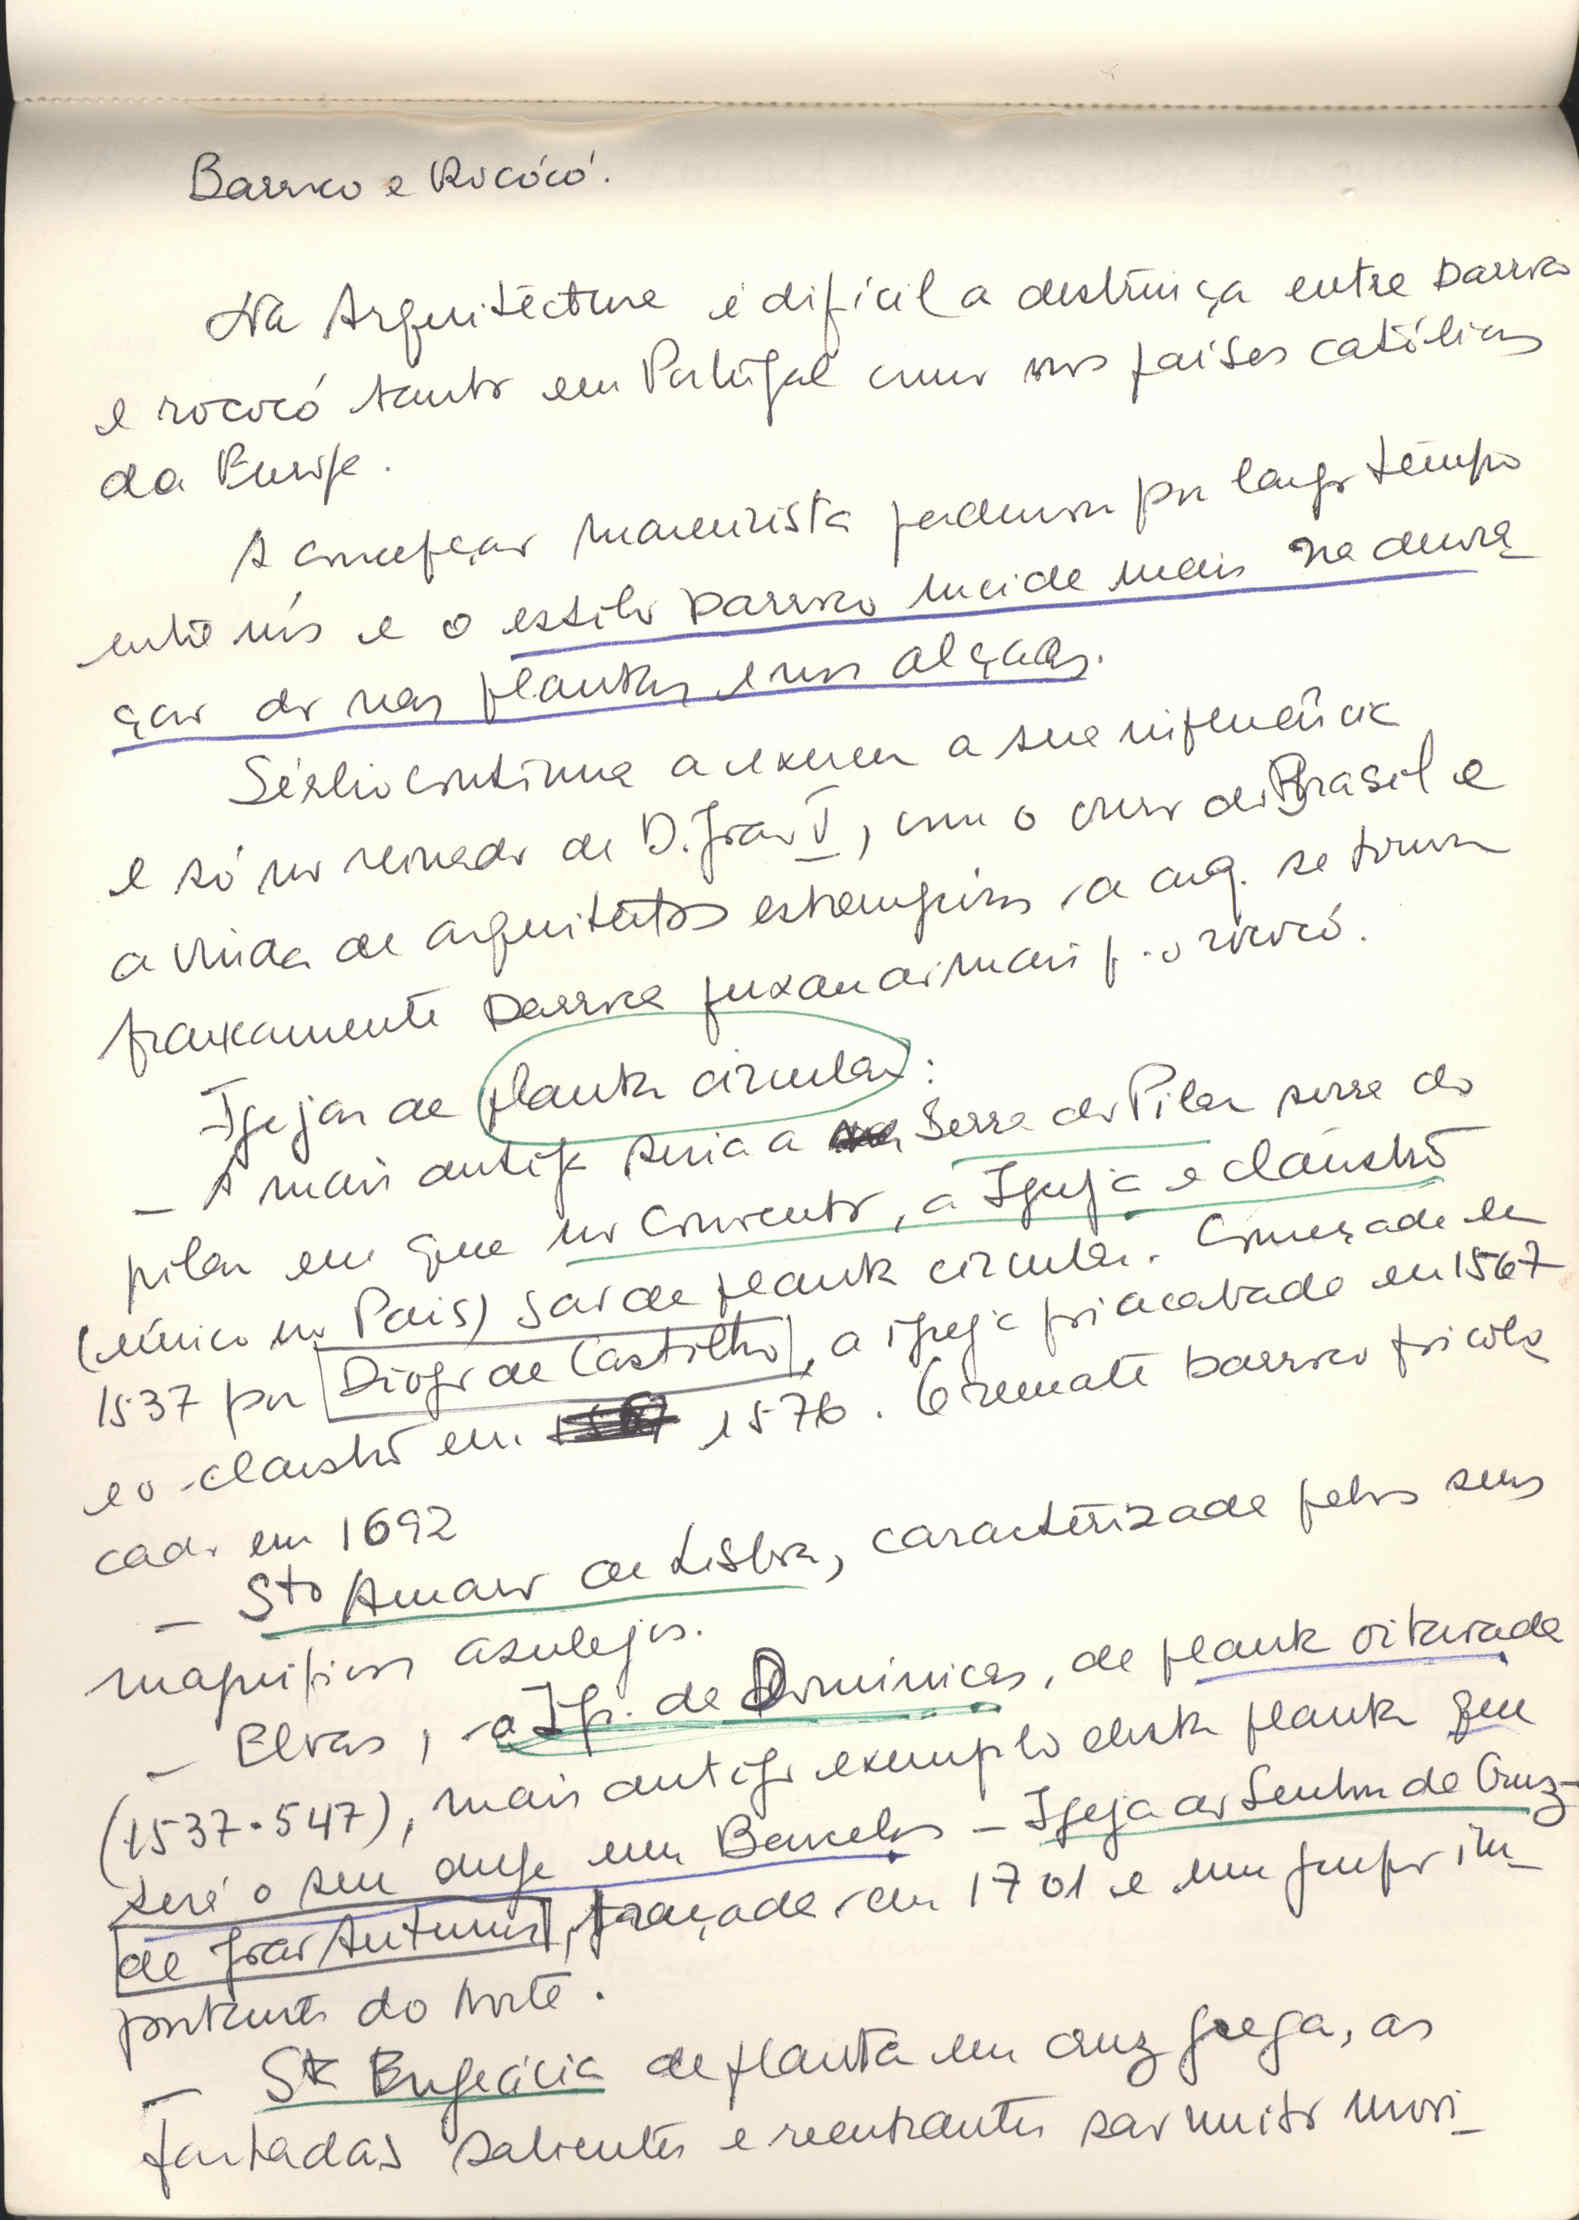 Barroco e Rococó.
Na Arquitectura é difícil a destrinça entre barroco
e rococó tanto em Portugal como nos países católicos
da Europa.
A concepção maneirista perdurou por largo tempo
entre nós e o estilo barroco incide mais na decora
ção do nas plantas e nos alçados.
Sérlio continua a exercer a sua influência
e só no reinado de D. João V, com o ouro do Brasil e
a vinda de arquitectos estrangeiros, a arq. se torna
francamente barroca puxando mais p. o rococó.
Igejas de planta circular:
– A mais antiga seria a Serra do Pilar serra do
pilar em que no Convento, a Igreja e cláustro
(único no País) são de planta circular. Começada em
1537 por Diogo de Castilho, a igreja foi acabada em 1567
e o claustro em 1576. O remate barroco foi colo
cado em 1692
– Sto Amaro de Lisboa, caracterizada pelos seus
magnificos azulejos.
– Elvas, a Ig. de Domínicas, de planta oitavada
(1537.547), mais antigo exemplo desta planta que
terá o seu auge em Barcelos – Igeja do Senhor da Cruz –
de João Antunes, traçada em 1701 e um grupo im_
portante do Norte.
– Sta Engrácia de planta em cruz grega, as
fachadas salientes e reentrantes são muito movi_